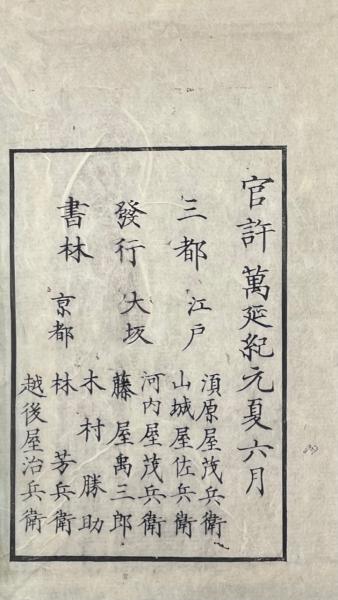 官許 萬延紀元夏六月
三都 江戸 須原屋茂兵衛
山城屋佐兵衛
發行 大坂 河内屋茂兵衛
藤屋禹三郎
書林 京都 木村勝助
林芳兵衛
越後屋治兵衛